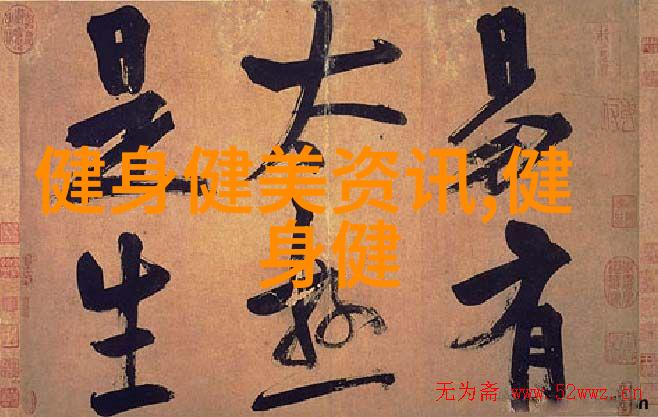 易有
太極
是生
健身健美资讯,健
身健
无为斋 www.52wwz.cn